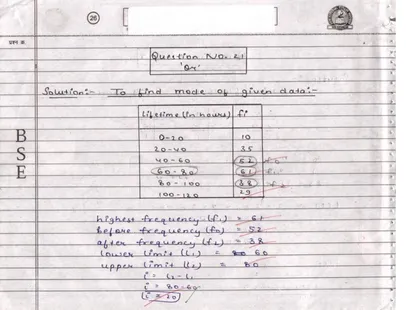 26
प्रश्न क्र.
Question No. 21
'Or'
Solution:- To find mode of given data:-
Lifetime (in hours) fi
0-20 10
20-40 35
40-60 52 f0
60-80 61 f1
80-100 38 f2
100-120 29
B
S
E
highest frequency (f1) = 61
before frequency (f0) = 52
after frequency (f2) = 38
lower limit (l1) = 60
upper limit (l2) = 80
i = l2-l1
i = 80-60
i = 20